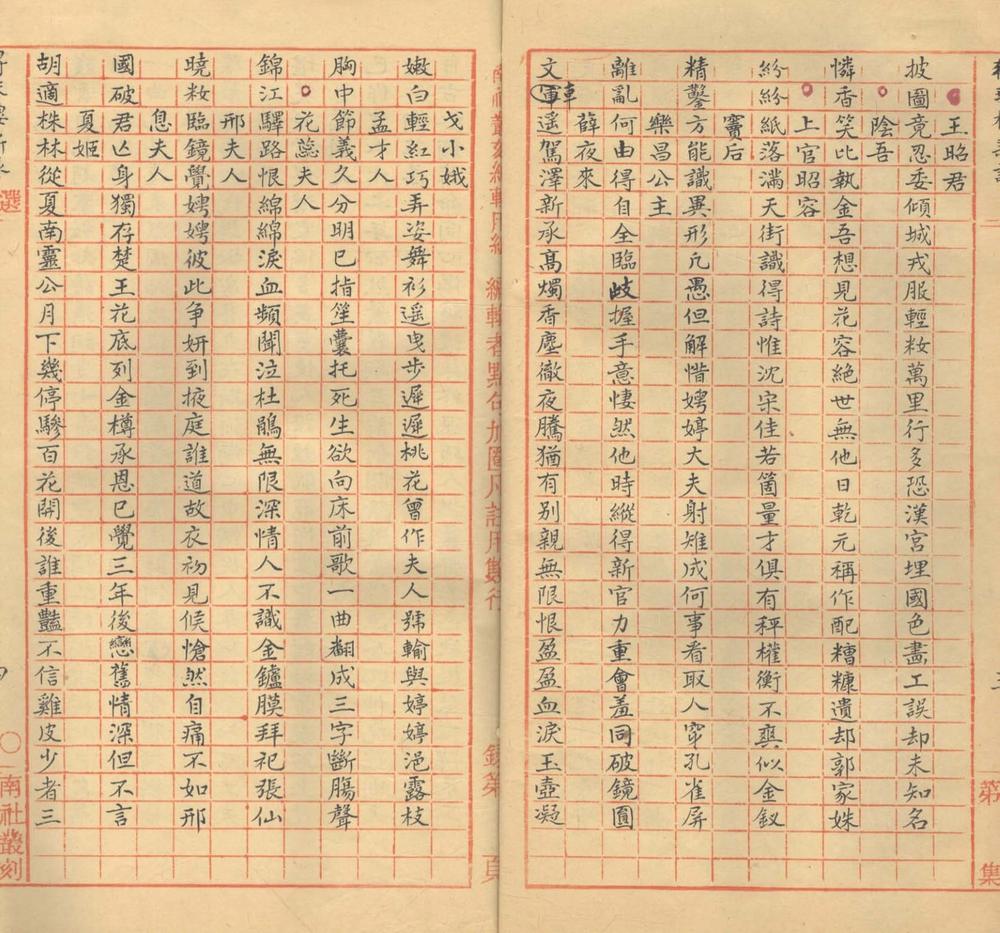 王昭君
披圖竟忍委傾城戎服輕妝萬里行多恐漢宮埋國色畵工誤却未知名
陰吾
憐香笑比執金吾想見花容絕世無他日乾元稱作配糟糠遺却郭家姝
上官昭容
紛紛紙落滿天街識得詩惟沈宋佳若箇量才俱有秤權衡不爽似金釵
竇后
精鑿方能識異形凢愚但解惜娉婷大夫射雉成何事看取人穿孔雀屏
樂昌公主
離亂何由得自全臨歧握手意悽然他時縱得新官力重會羞同破鏡圓
薛夜來
文車遥駕澤新承髙燭香塵徹夜騰猶有别親無限恨盈盈血淚玉壺凝
戈小娥
嫩白輕紅巧弄姿舞衫遥曳步遲遲桃花曾作夫人號輸與婷婷浥露枝
孟才人
胸中節義久分明已指笙囊托死生欲向床前歌一曲翻成三字斷腸聲
花蕊夫人
錦江驛路恨綿綿淚血頻聞泣杜鵑無限深情人不識金鑪膜拜祀張仙
邢夫人
曉妝臨鏡覺娉娉彼此争妍到掖庭誰道故衣初見候愴然自痛不如邢
息夫人
國破君亾身獨存楚王花底列金樽承恩已覺三年後戀舊情深但不言
夏姬
胡適株林從夏南靈公月下幾停驂百花開後誰重豔不信雞皮少者三
選
南社叢刻
第
集